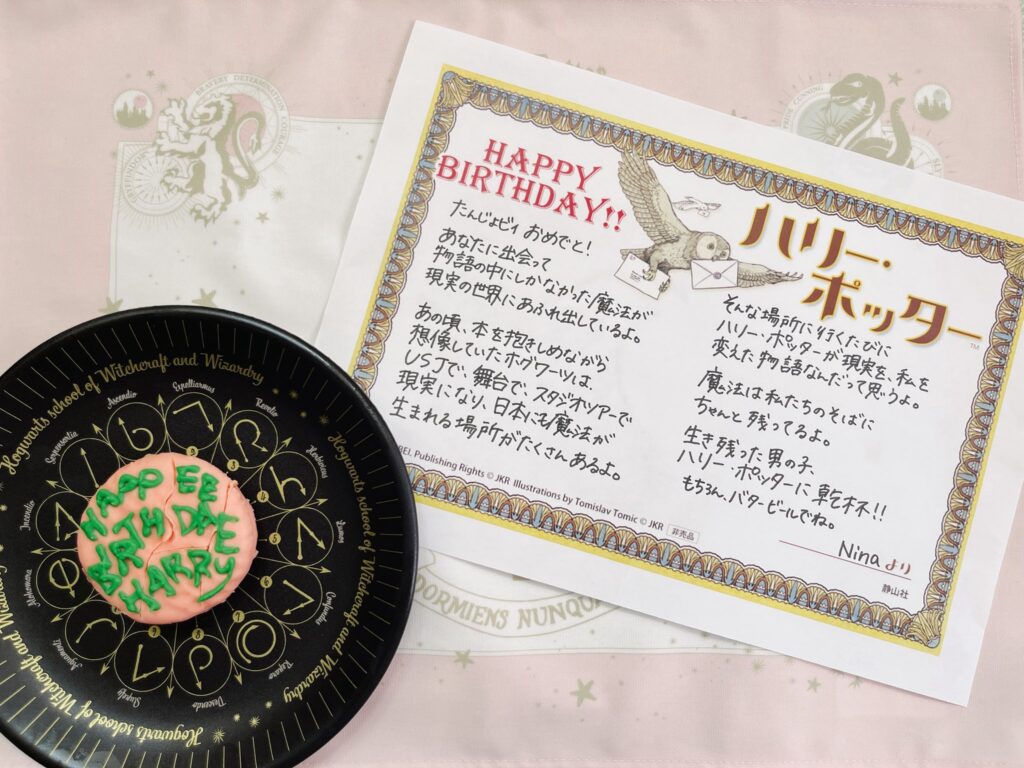 BRAVERY DETERMINATION COURAGE
HAPPY
BIRTHDAY!!
たんじょビィ おめでと!
あなたに出会って
物語の中にしかなかった魔法が
現実の世界にあふれ出しているよ。
あの頃、本を抱きしめながら
想像していたホグワーツは、
USJで、舞台で、スタジオツアーで
現実になり、日本にも魔法が
生まれる場所がたくさんあるよ。
ハリー・
ポッター
TM
そんな場所に行くたびに
ハリー・ポッターが現実を、私を
変えた物語なんだって思うよ。
魔法は私たちのそばに
ちゃんと残ってるよ。
生き残った男の子、
ハリー・ポッターに乾杯!!
もちろん、バタービールでね。
Nina より
静山社
BEI. Publishing Rights © JKR Illustrations by Tomislav Tomic © JKR 非売品
DORMIENS NUNQUAM
Hogwarts school of Witchcraft and Wizardry
Hogwarts school of Witchcraft and Wizardry
Hogwarts school of Witchcraft and Wizardry
Ascendio
Expelliarmus
Revelio
Herbivicus
Lumos
Reparo
Descendo
Stupefy
Aguamenti
Alohomora
Incendio
HAPPEE
BIRTHDAE
HARRY